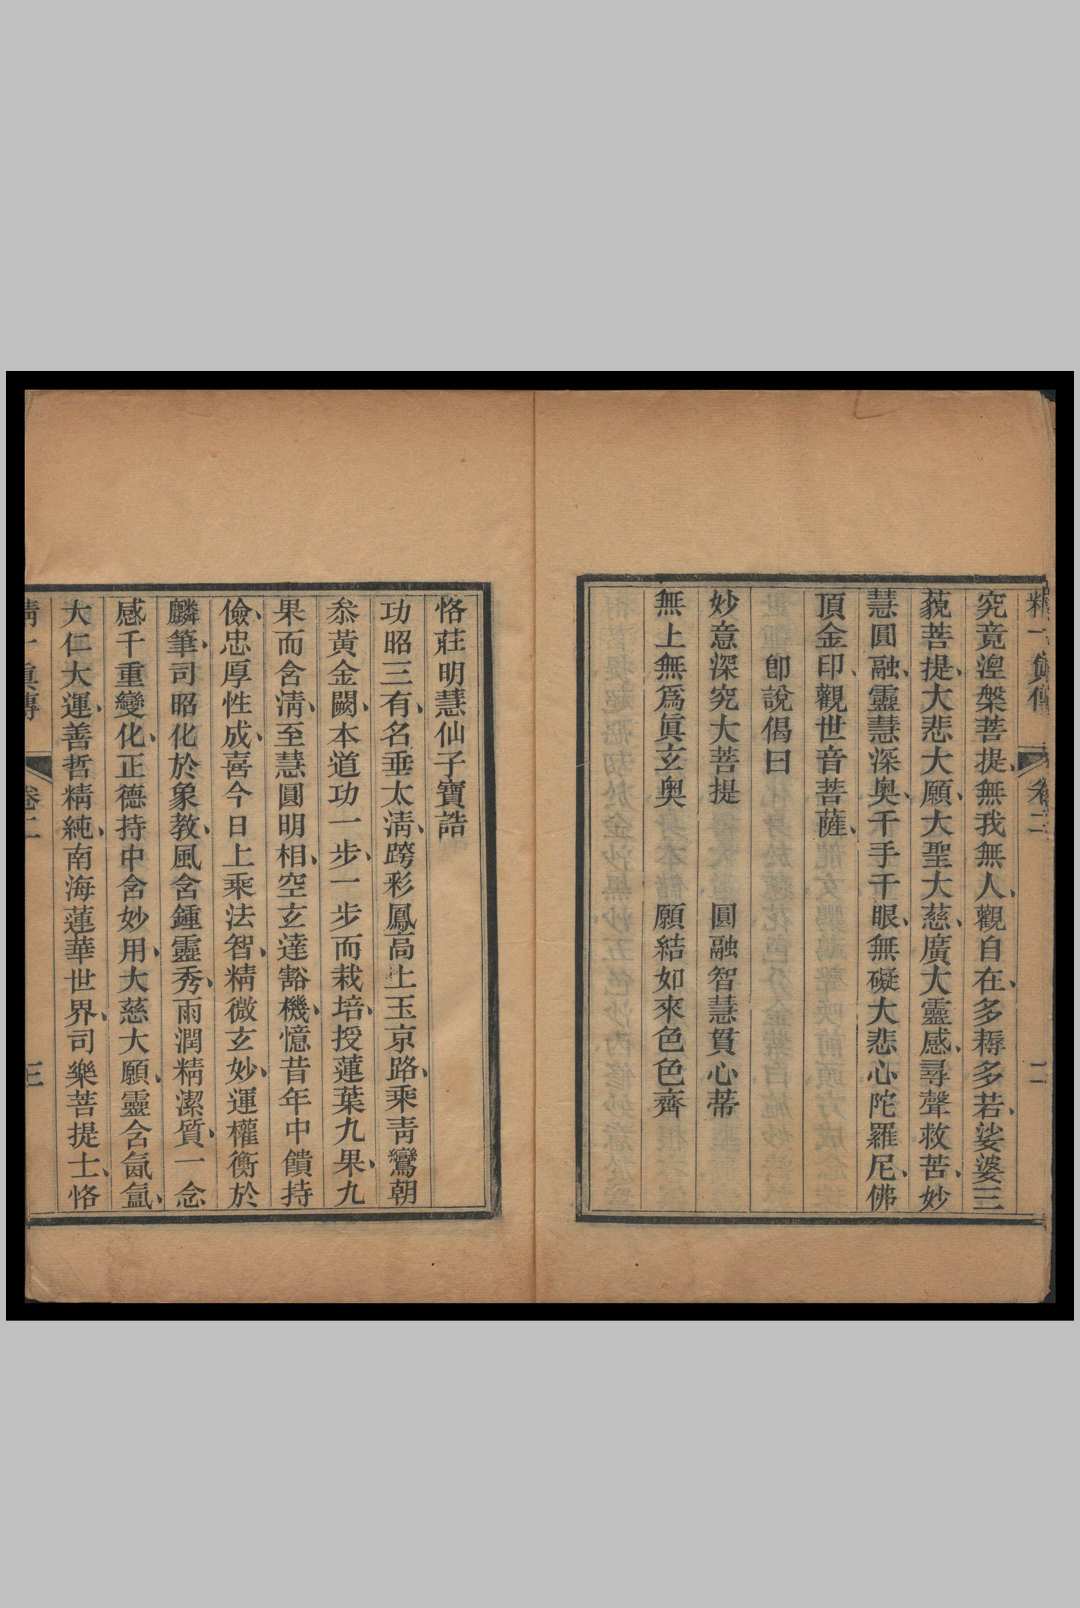 精一眞傳 卷二 二
究竟湼槃菩提、無我無人、觀自在、多耨多若、娑婆三
藐菩提、大悲大願、大聖大慈、廣大靈感、尋聲救苦、妙
慧圓融、靈慧深奥、千手千眼、無礙大悲心陀羅尼、佛
頂金印、觀世音菩薩、
卽說偈曰
妙意深究大菩提 圓融智慧貫心蒂
無上無爲眞玄奥 願結如來色色齊
恪莊明慧仙子寶誥
功昭三有、名垂太淸、跨彩鳳高上玉京路、乘靑鸞朝
叅黃金闕、本道功一步、一步而栽培、授蓮葉九果、九
果而含淸、至慧圓明相、空玄達豁機、憶昔年中饋持
儉、忠厚性成、喜今日上乘法智、精微玄妙、運權衡於
麟筆、司昭化於象教、風含鍾靈秀、雨潤精潔質、一念
感千重變化、正德持中含妙用、大慈大願、靈含氤氳、
大仁大運、善哲精純、南海蓮華世界、司樂菩提士、恪
精一眞傳 卷二 三